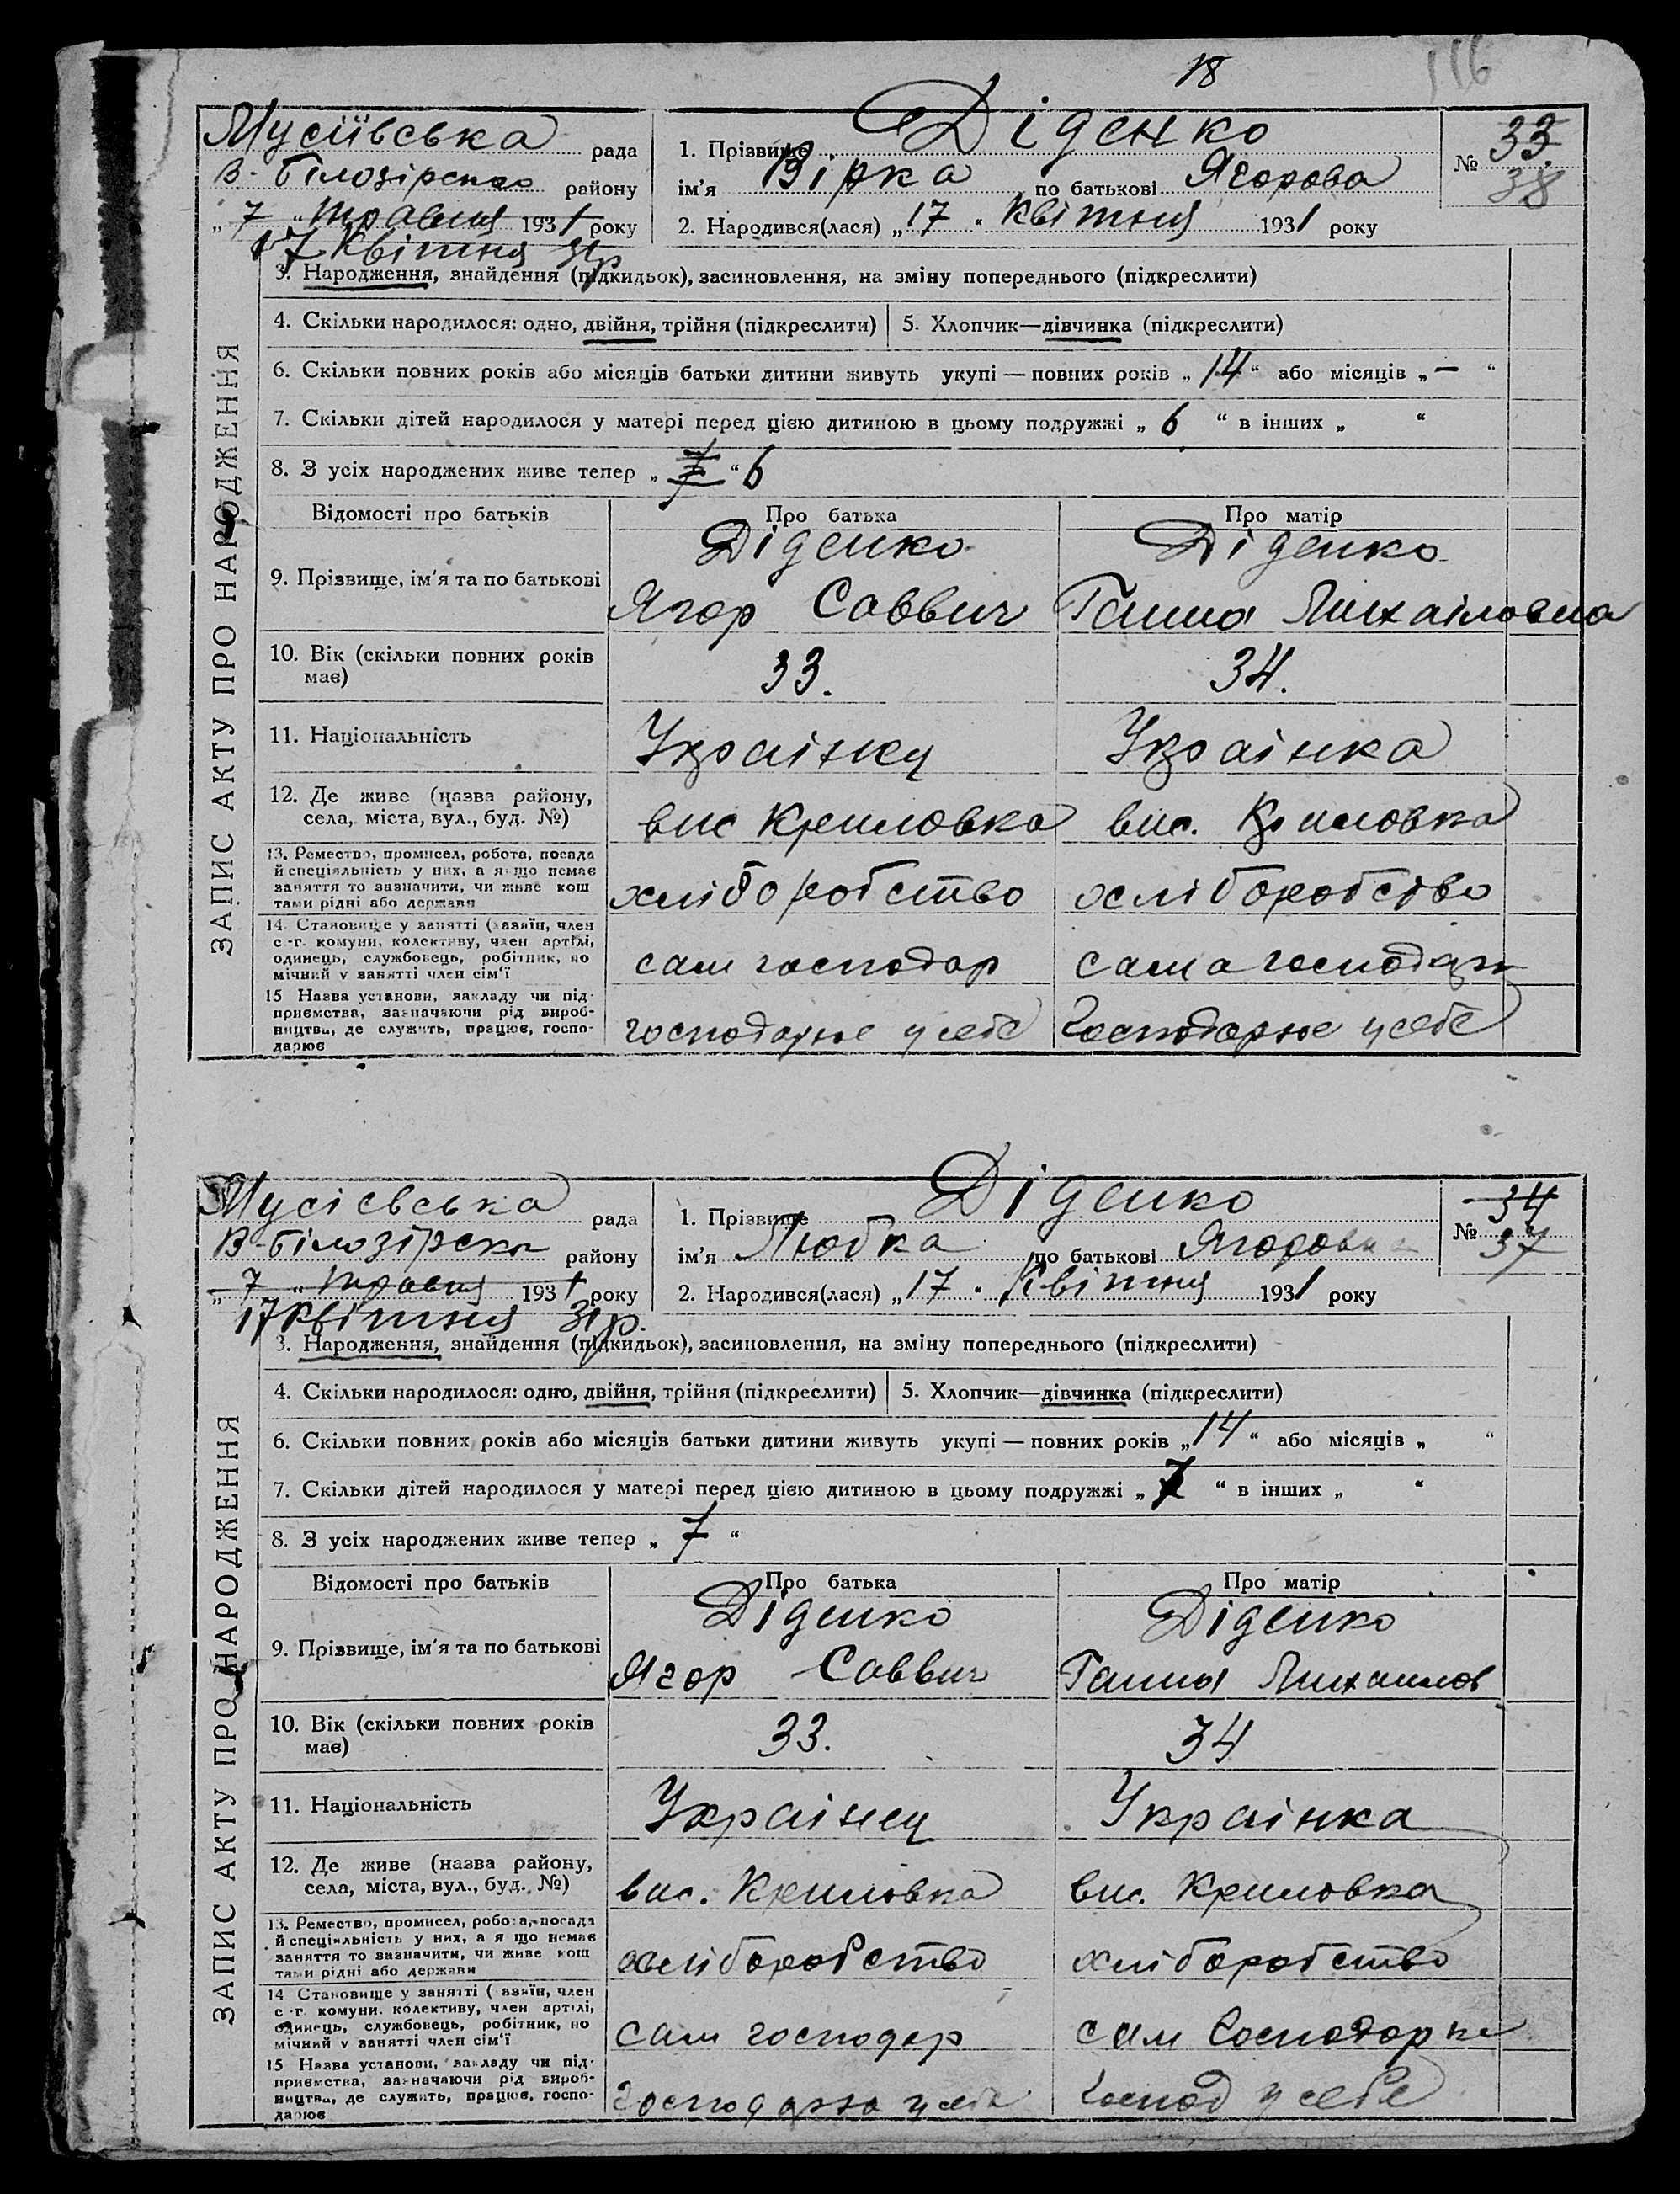 18
116
Мусіївська рада
В-Білозірсько району
„7 " травня 1931 року
17 квітня 31р
1. Прізвище Діденко
ім'я Вірка по батькові Ягорова
2. Народився(лася) „17 " квітня 1931 року
№ 33.
38
ЗАПИС АКТУ ПРО НАРОДЖЕННЯ
3. Народження, знайдення (підкидьок), засиновлення, на зміну попереднього (підкреслити)
4. Скільки народилося: одно, двійня, трійня (підкреслити) 5. Хлопчик—дівчинка (підкреслити)
6. Скільки повних років або місяців батьки дитини живуть укупі — повних років „ 14 " або місяців „ – "
7. Скільки дітей народилося у матері перед цією дитиною в цьому подружжі „ 6 " в інших „ "
8. З усіх народжених живе тепер „ 7 " 6
Відомості про батьків Про батька Про матір
9. Прізвище, ім'я та по батькові Діденко Ягор Саввич Діденко Ганна Михаіловна
10. Вік (скільки повних років має) 33. 34.
11. Національність Украінец Украінка
12. Де живе (назва району, села, міста, вул., буд. №) вис Крилювка вис. Крилювка
13. Ремество, промисел, робота, посада й спеціяльність у них, а якщо немає заняття то зазначити, чи живе коштами рідні або держави хліборобство хліборобство
14. Становище у занятті (хазяїн, член с.-г. комуни, колективу, член артілі, одинець, службовець, робітник, помічний у занятті член сім'ї сам господар сама господар
15 Назва установи, закладу чи підприємства, зазначаючи рід виробництва, де служить, працює, господарює господарює у себе Господарює у себе
Мусієвська рада
В-Білозірска району
„ 7 " травня 1931 року
17 квітня 31р.
1. Прізвище Діденко
ім'я Любка по батькові Ягоровна
2. Народився(лася) „17 " Квітня 1931 року
34
№ 37
ЗАПИС АКТУ ПРО НАРОДЖЕННЯ
3. Народження, знайдення (підкидьок), засиновлення, на зміну попереднього (підкреслити)
4. Скільки народилося: одно, двійня, трійня (підкреслити) 5. Хлопчик—дівчинка (підкреслити)
6. Скільки повних років або місяців батьки дитини живуть укупі — повних років „ 14 " або місяців „ "
7. Скільки дітей народилося у матері перед цією дитиною в цьому подружжі „ 7 " в інших „ "
8. З усіх народжених живе тепер „ 7 "
Відомості про батьків Про батька Про матір
9. Прізвище, ім'я та по батькові Діденко Ягор Саввич Діденко Ганна Михаилов
10. Вік (скільки повних років має) 33. 34
11. Національність Украінец Украінка
12. Де живе (назва району, села, міста, вул., буд. №) вис. Крилювка вис. Крилювка
13. Ремество, промисел, робота, посада й спеціяльність у них, а якщо немає заняття то зазначити, чи живе коштами рідні або держави хліборобство хліборобство
14 Становище у занятті (хазяїн, член с.-г. комуни. колективу, член артілі, одинець, службовець, робітник, помічний у занятті член сім'ї сам господар сам Господарка
15 Назва установи, закладу чи підприємства, зазначаючи рід виробництва, де служить, працює, господарює у себе господ у себе